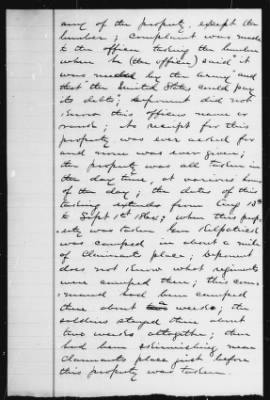 any of the property, except the
lumber; complaint was made
to the officer taking the lumber
when he (the officer) said it
was needed by the army and
that the United States could pay
its debts; deponent did not
know this officers name or
rank; No receipt for this
property was ever asked for
and none was ever given;
the property was all taken in
the day time, at various hours
of the day; the dates of this
taking extends from Aug 13th
to Sept 1st 1864; when this prop-
erty was taken Gen Kilpatrick
was camped in about a mile
of Claimants place; Deponent
does not know what regiments
were camped there; this com-
mand had been camped
there about weeks; the
soldiers stayed there about
two weeks altogether; there
had been skirmishing near
claimants place just before
this property was taken.